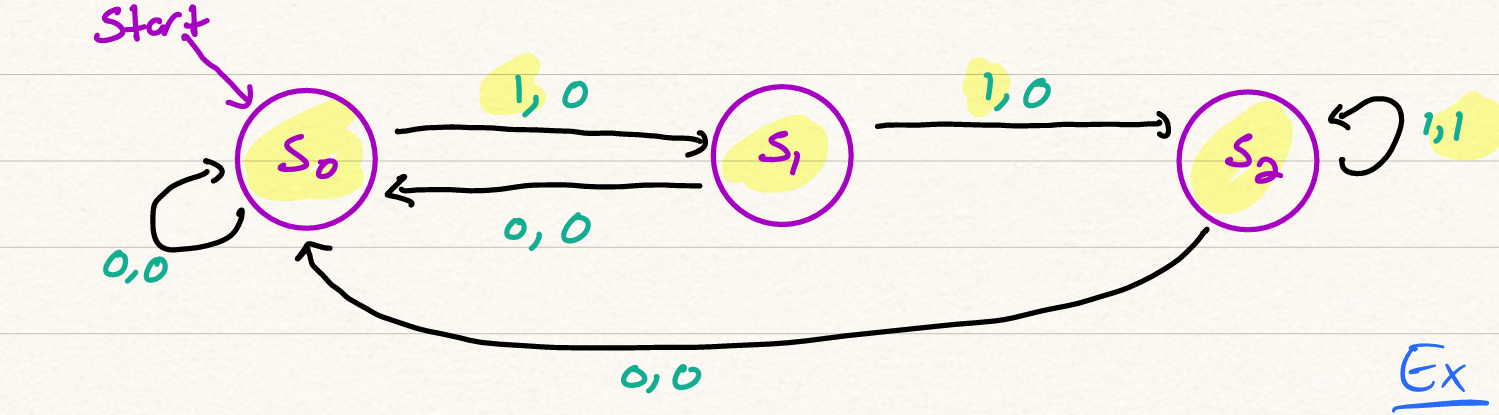 Start
1, 0
1, 0
S0
S1
S2
1,1
0, 0
0,0
0, 0
Ex